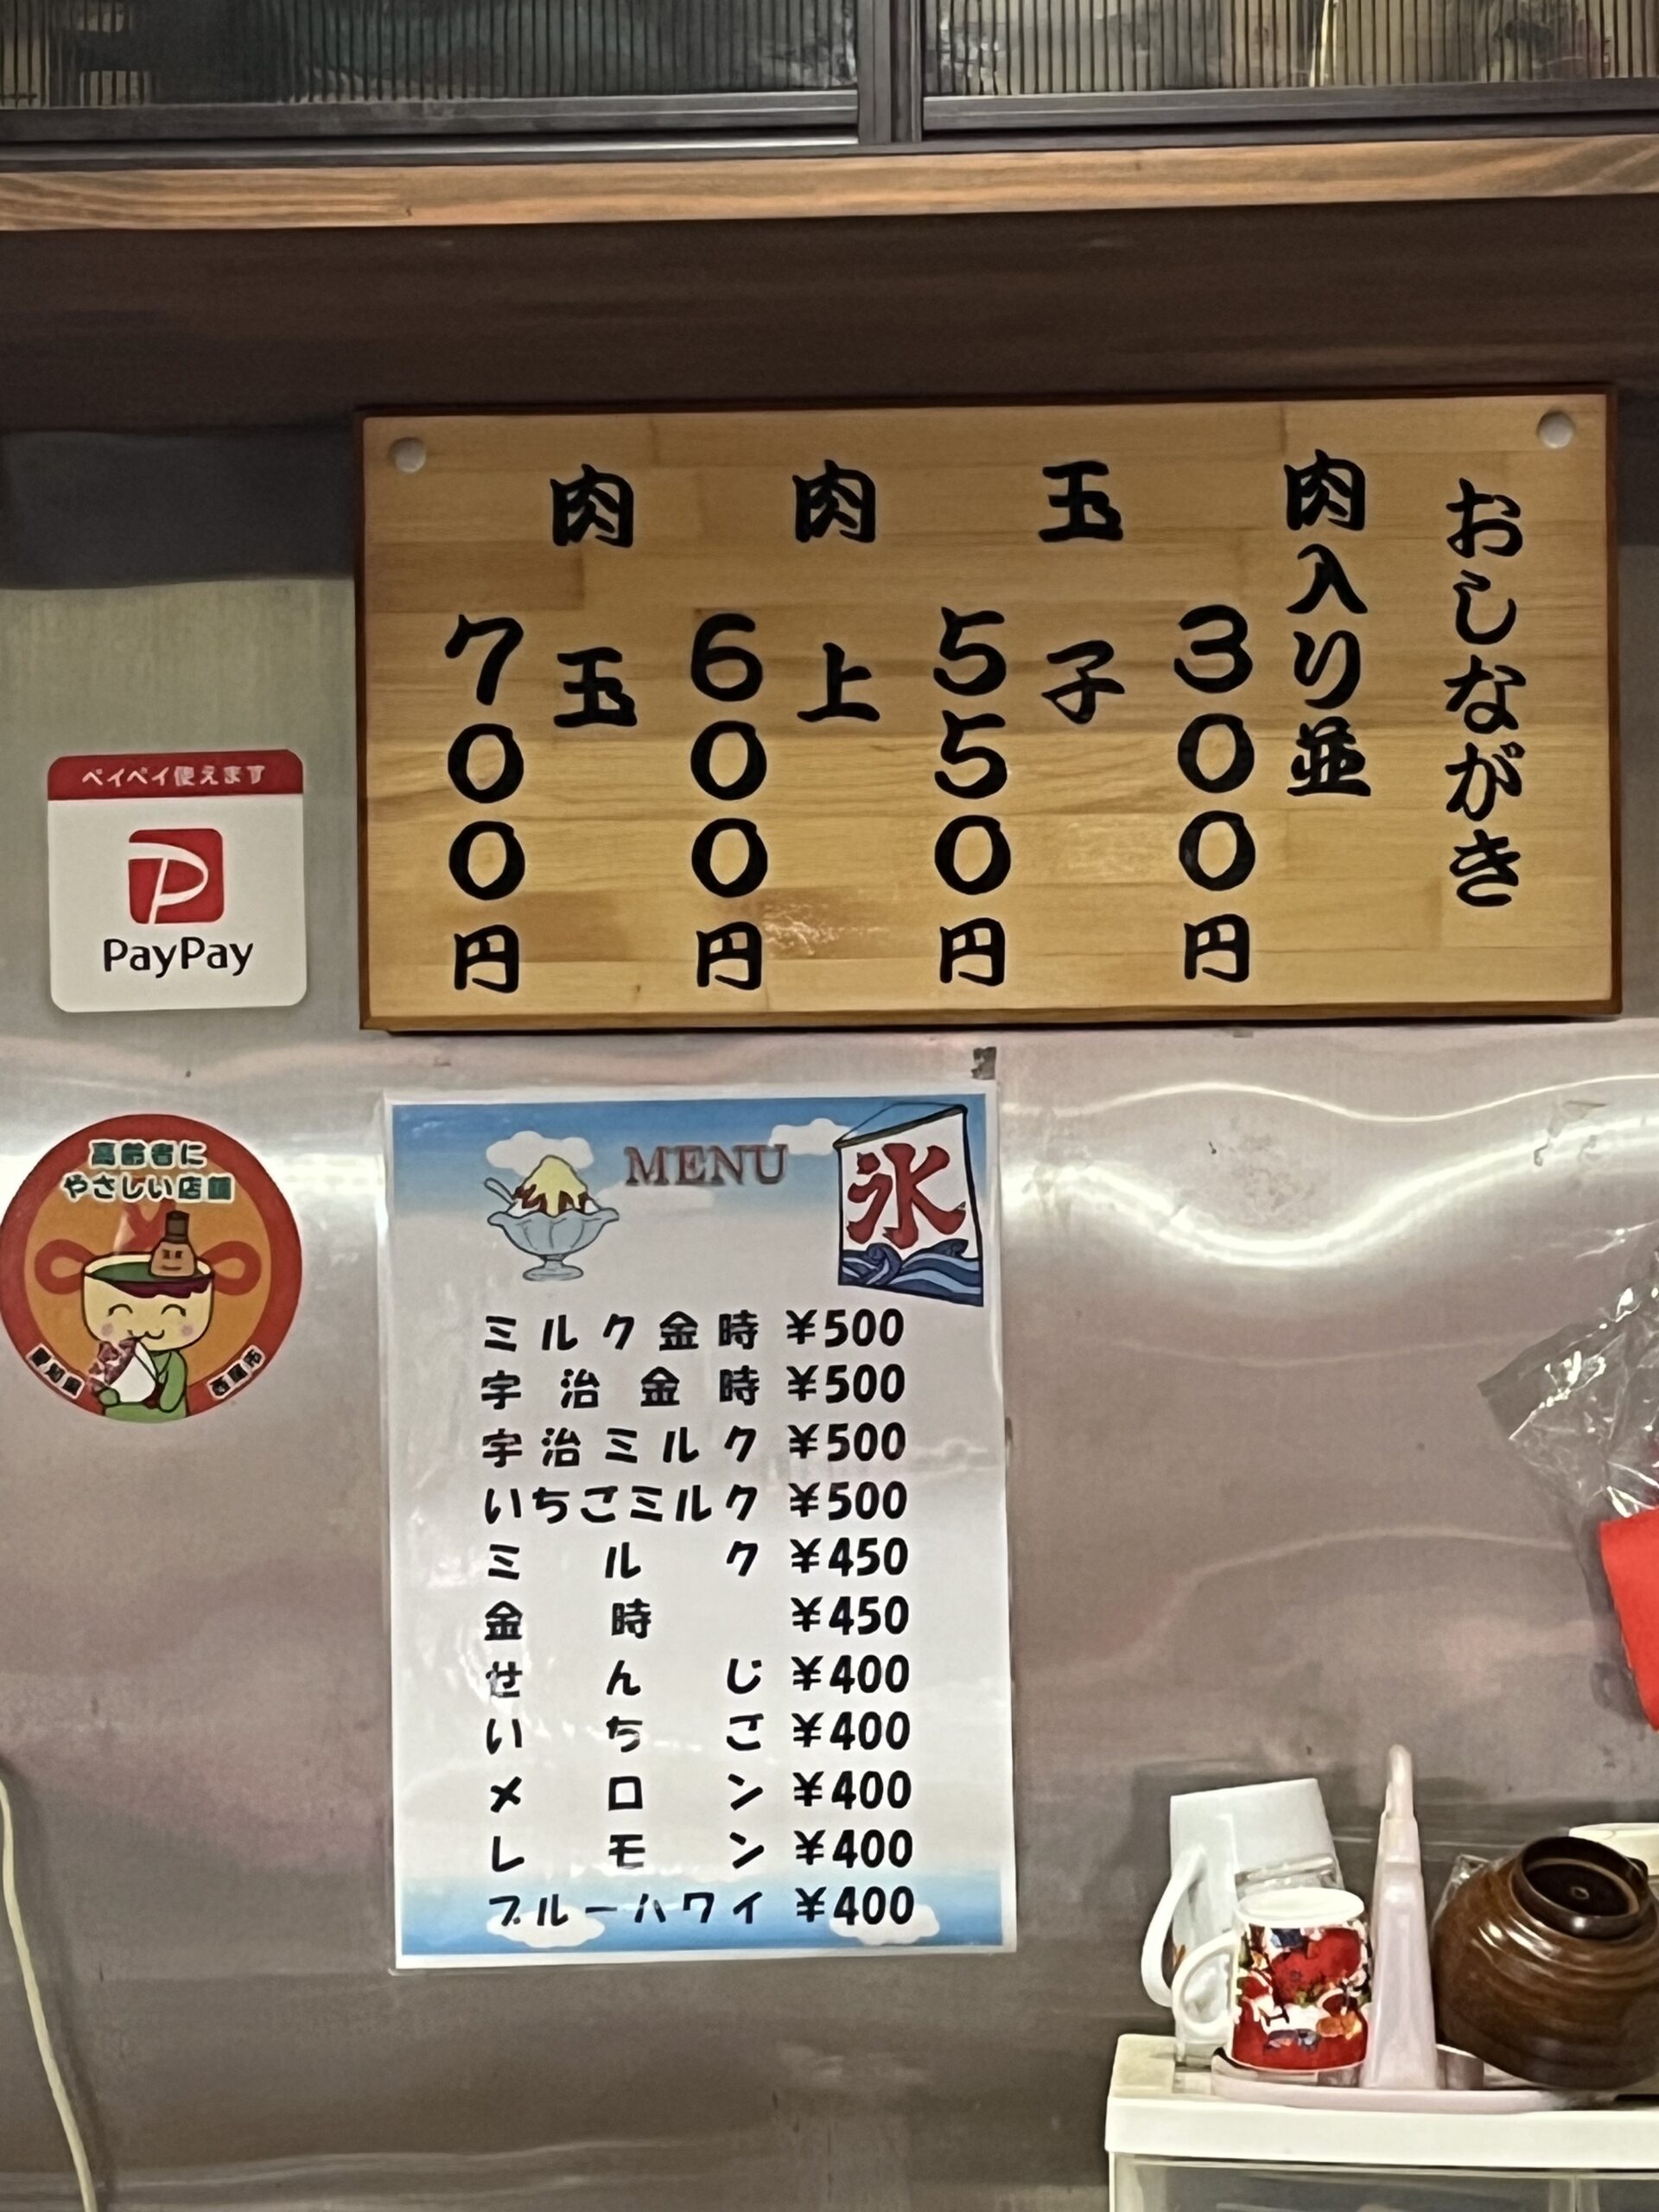 おしながき
肉入り並
300円
玉子
550円
肉上
600円
肉玉
700円
ペイペイ使えます
PayPay
高齢者に
やさしい店舗
愛知県 西尾市
MENU
氷
ミルク金時 ¥500
宇治金時 ¥500
宇治ミルク ¥500
いちごミルク ¥500
ミルク ¥450
金時 ¥450
せんじ ¥400
いちご ¥400
メロン ¥400
レモン ¥400
ブルーハワイ ¥400